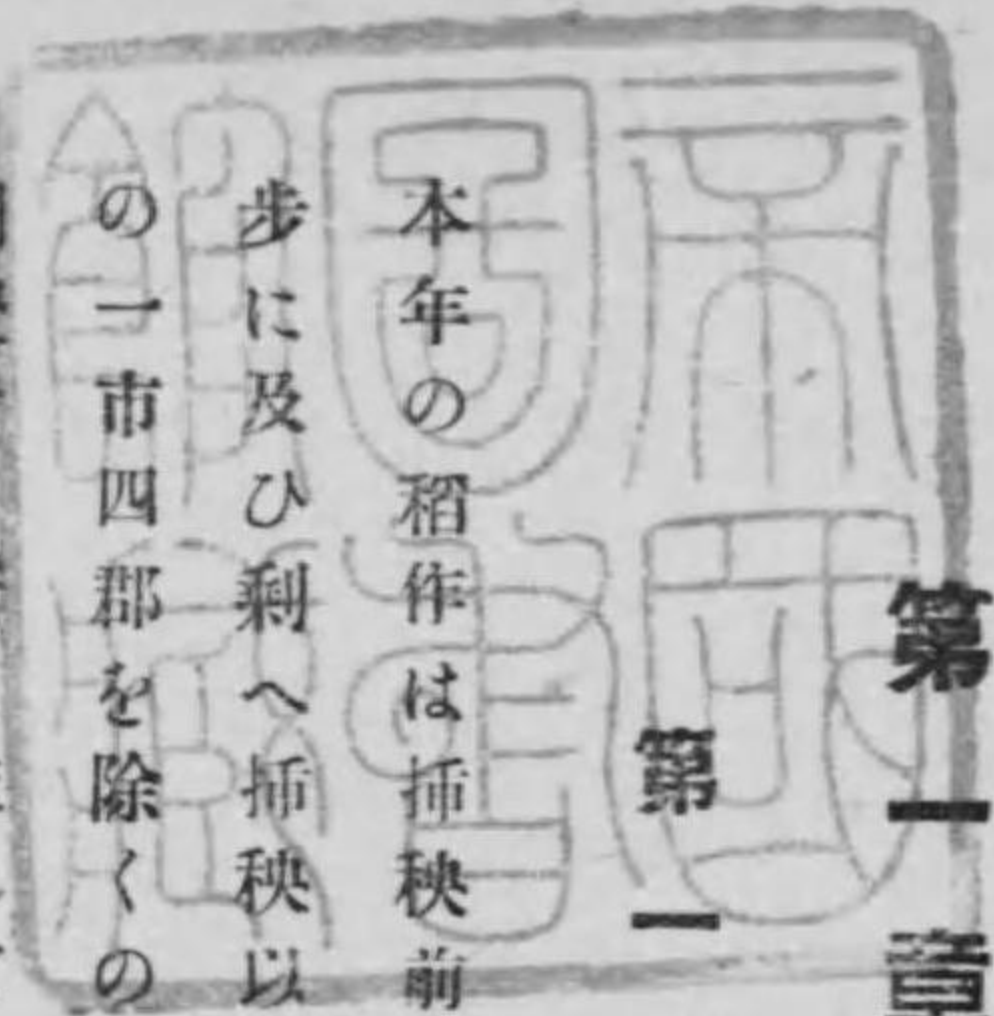 第一章
第一
本年の稻作は挿秧前
步に及ひ剩へ挿秧以
の一市四郡を除くの